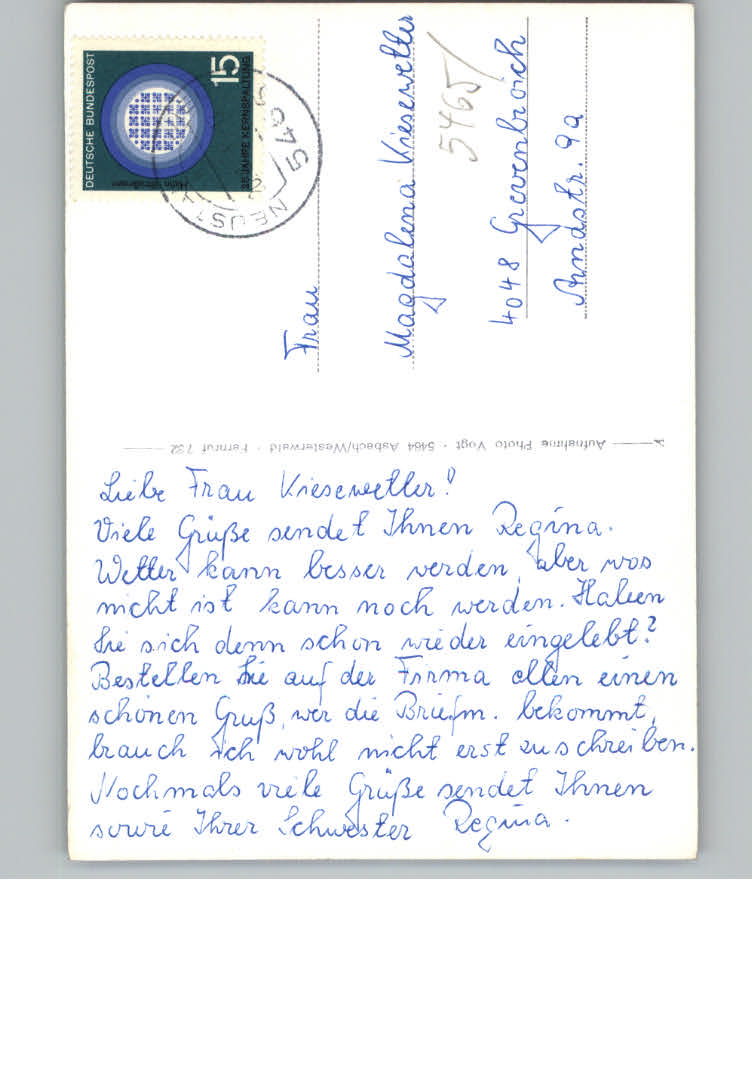 DEUTSCHE BUNDESPOST
15
25 JAHRE KERNSPALTUNG
5465
NEUST
Frau
Magdalena Kiesewetter
4048 Grevenbroich
Arndstr. 9a
5465/
Aufnahme Photo Vogt · 5464 Asbach/Westerwald · Fernruf 732
Liebe Frau Kiesewetter!
Viele Grüße sendet Ihnen Regina.
Wetter kann besser werden, aber was
nicht ist kann noch werden. Haben
Sie sich denn schon wieder eingelebt?
Bestellen Sie auf der Firma allen einen
schönen Gruß, wer die Briefm. bekommt,
brauch ich wohl nicht erst zu schreiben.
Nochmals viele Grüße sendet Ihnen
sowie Ihrer Schwester Regina.